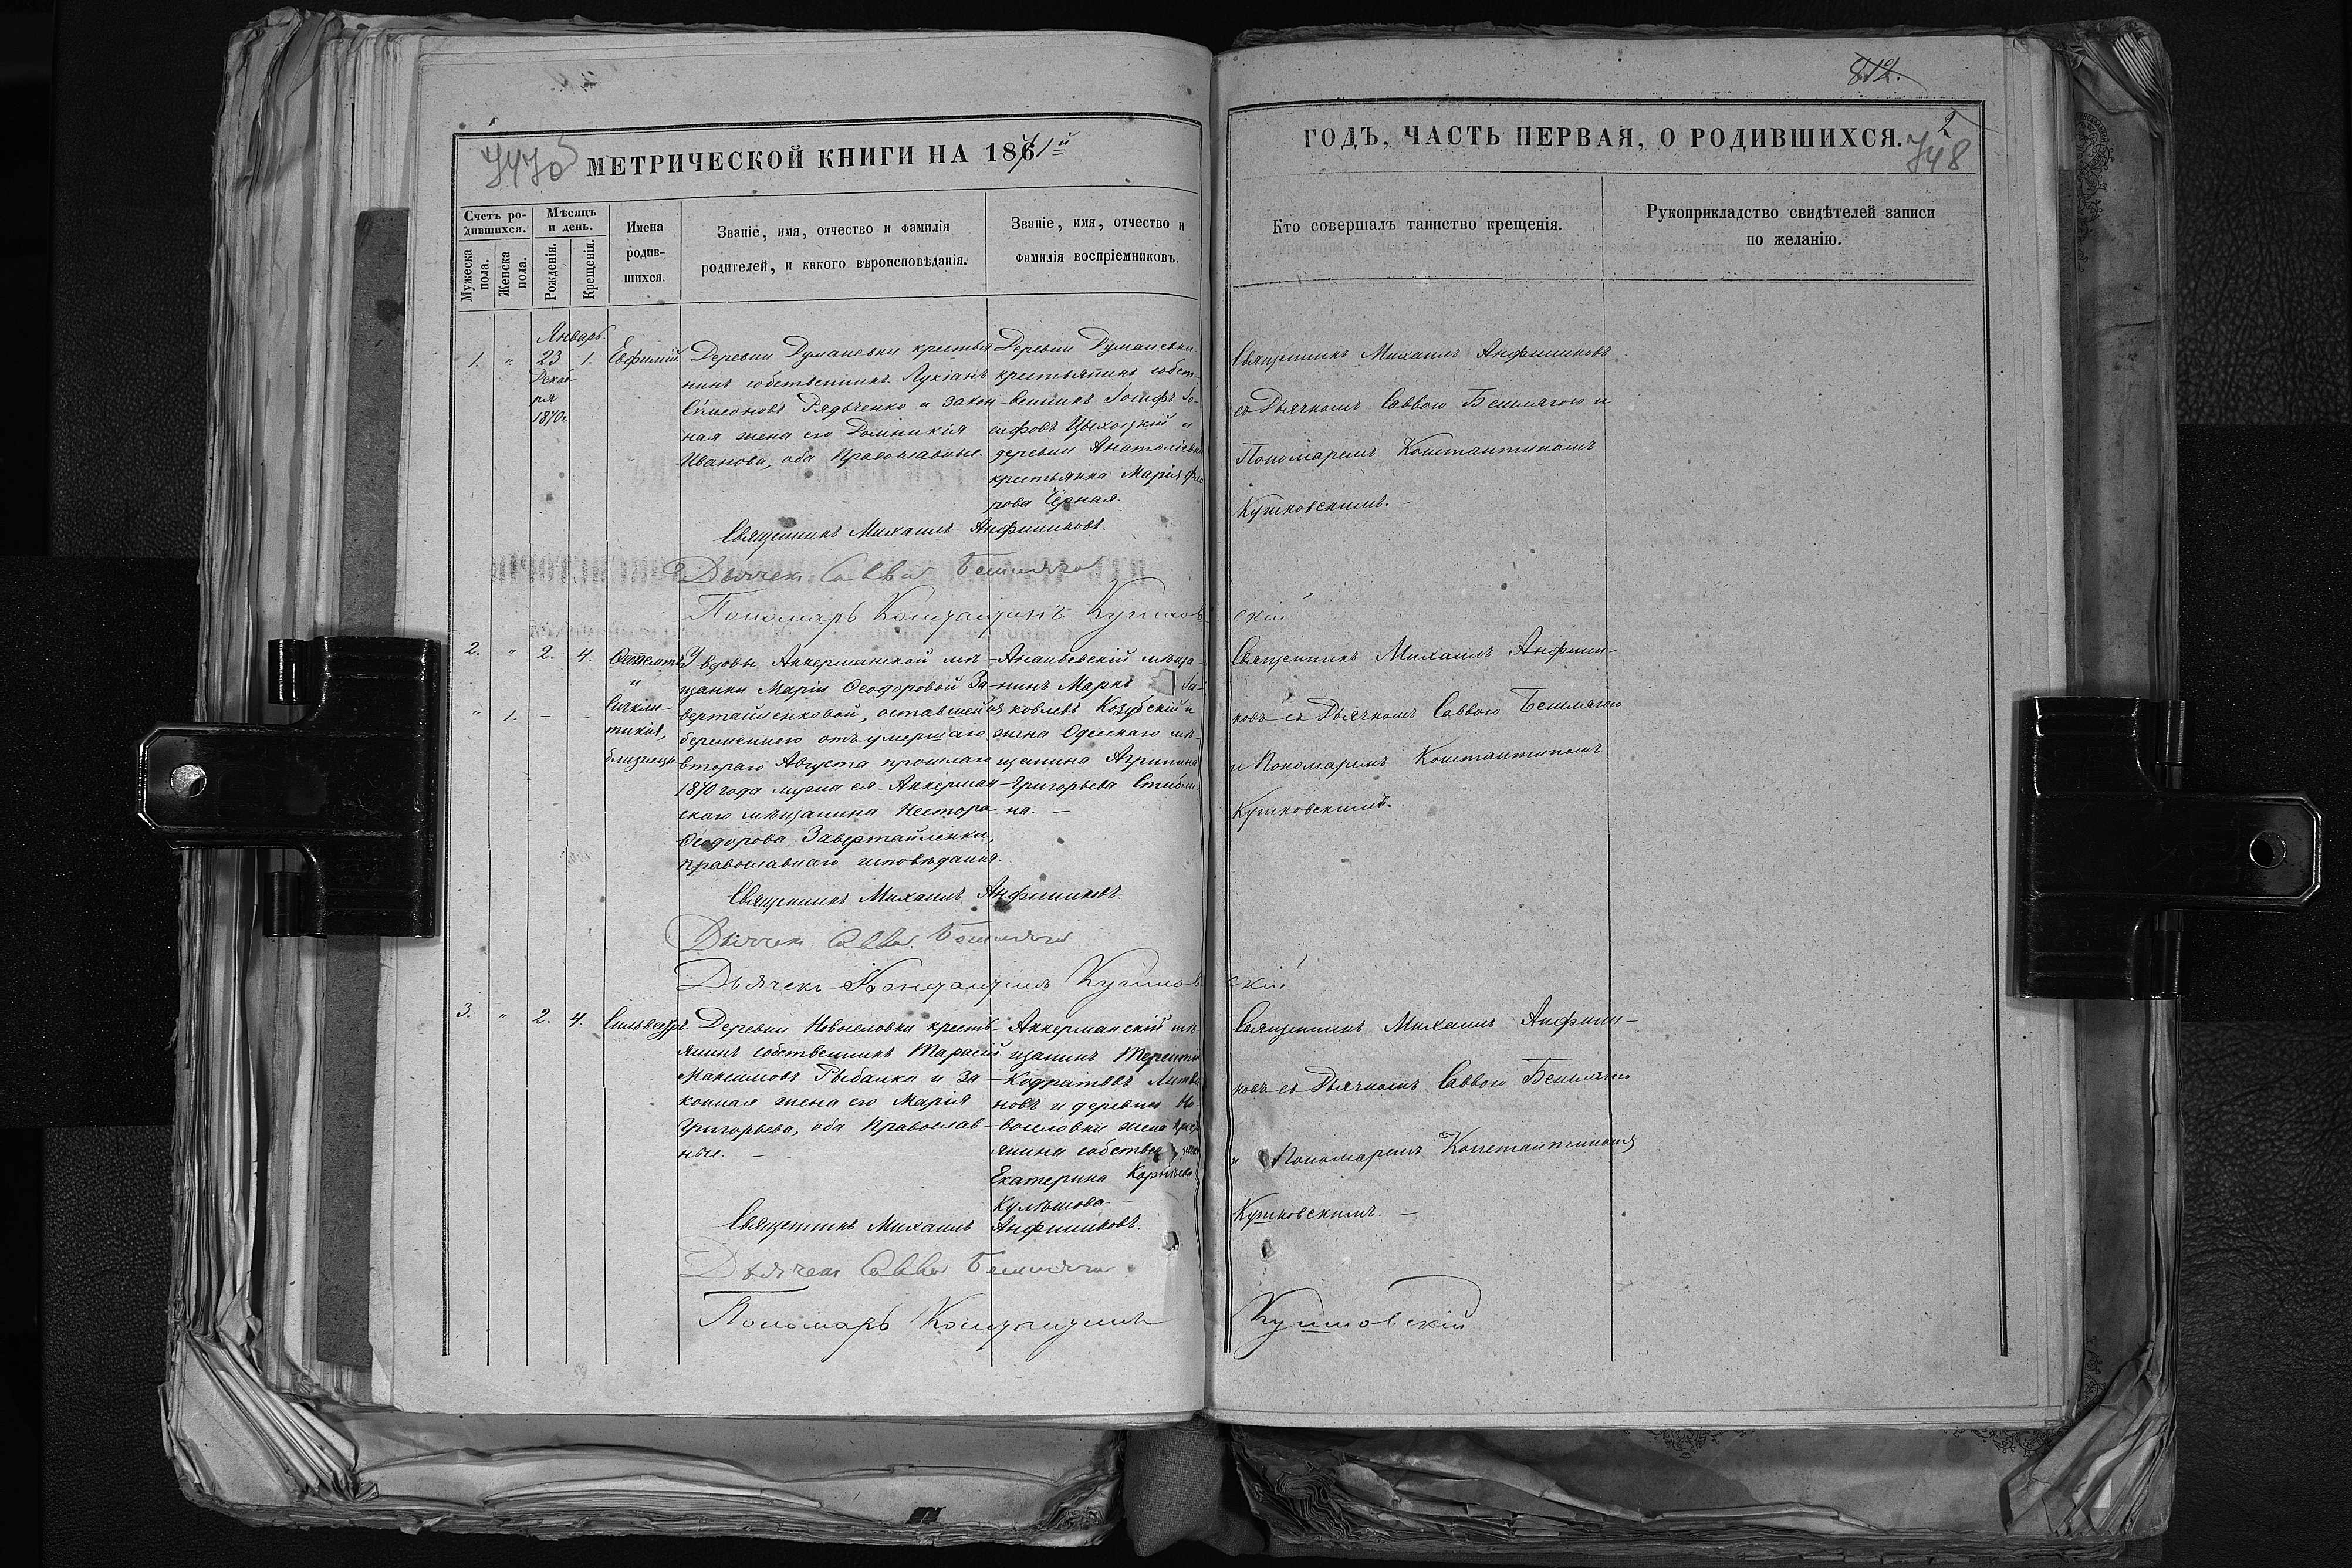 812.
МЕТРИЧЕСКОЙ КНИГИ НА 1871й
ГОДЪ, ЧАСТЬ ПЕРВАЯ, О РОДИВШИХСЯ.
748
Счетъ ро-
дившихся.
Мужеска
пола.
Женска
пола.
Мѣсяцъ
и день.
Рожденія.
Крещенія.
Имена
родив-
шихся.
Званіе, имя, отчество и фамилія
родителей, и какого вѣроисповѣданія.
Званіе, имя, отчество и
фамилія воспріемниковъ.
Кто совершалъ таинство крещенія.
Рукоприкладство свидѣтелей записи
по желанію.
Январь
1. " 23 1. Евфимій.
Декаб-
ря
1870г.
Деревни Думаневки крестья
нинъ собственникъ Лукіанъ
Симеоновъ Рядѣченко и закон
ная жена его Домникія
Иванова, оба православные.
Деревни Думаневки
крестьянинъ собст-
венникъ Іосифъ Іо-
сифовъ Цыхоцкій и
деревни Анатоліевки
крестьянка Марія
рова Чёрная.
Священникъ Михаилъ Анфиниковъ
съ Дьячкомъ Саввою Бешлягою и
Пономаремъ Константиномъ
Кушковскимъ.-
Священникъ Михаилъ Анфиниковъ.
Дьячекъ Савва Бешляга
Пономарь Константинъ Кушков
скій
2. " 2. 4.
и
" 1. - -
Синкли-
тикія,
близнецы
У вдовы Аккерманской мѣ-
щанки Маріи Ѳеодоровой За-
вертайленковой, оставшейся
беременною отъ умершаго
втораго Августа прошлаго
1870 года мужа ея Аккерман-
скаго мѣщанина Нестора
Ѳеодорова Завертайленки,
православнаго исповѣданія.
Ананьевскій мѣща-
нинъ Маркъ Іа-
ковлевъ Козубскій и
жена Одесскаго мѣ-
щанина Агрипина
Григорьева Стибли-
на.-
Священникъ Михаилъ Анфини-
ковъ съ Дьячкомъ Саввою Бешлягою
и Пономаремъ Константиномъ
Кушковскимъ.
Священникъ Михаилъ Анфиниковъ.
Дьячекъ Савва Бешляга
Дьячекъ Константинъ Кушков
скій
3. " 2. 4. Сильвестръ.
Деревни Новоселовки кресть-
янинъ собственникъ Тарасій
Максимовъ Рыбалка и за-
конная жена его Марія
Григорьева, оба православ-
ные.-
Аккерманскій мѣ-
щанинъ Терентій
Кодратовъ Литви
новъ и деревни Но-
воселовки жена
янина собствен
Екатерина
Кулѣшова.-
Священникъ Михаилъ Анфини-
ковъ съ Дьячкомъ Саввою Бешлягою
и Пономаремъ Константиномъ
Кушковскимъ.-
Священникъ Михаилъ Анфиниковъ.
Дьячекъ Савва Бешляга
Пономарь Константинъ
Кушковскій